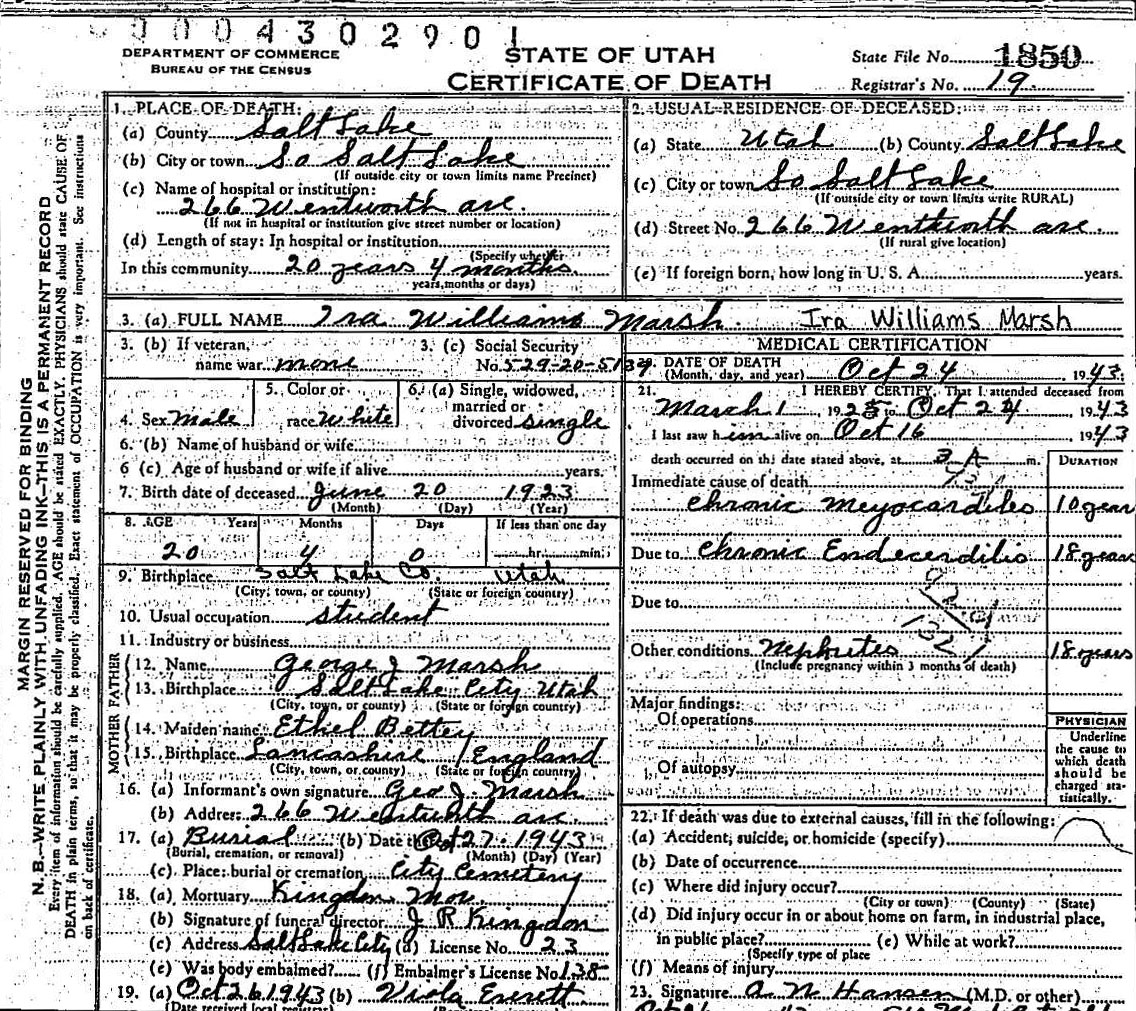 0004302901
DEPARTMENT OF COMMERCE
BUREAU OF THE CENSUS
STATE OF UTAH
CERTIFICATE OF DEATH
State File No. 1850
Registrar's No. 19
MARGIN RESERVED FOR BINDING
N. B.—WRITE PLAINLY WITH UNFADING INK—THIS IS A PERMANENT RECORD
Every item of information should be carefully supplied. AGE should be stated EXACTLY. PHYSICIANS should state CAUSE OF
DEATH in plain terms, so that it may be properly classified. Exact statement of OCCUPATION is very important. See instructions
on back of certificate.
1. PLACE OF DEATH:
(a) County Salt Lake
(b) City or town So Salt Lake
(If outside city or town limits name Precinct)
(c) Name of hospital or institution:
266 Wentworth ave.
(If not in hospital or institution give street number or location)
(d) Length of stay: In hospital or institution
(Specify whether
In this community 20 years 4 months
years, months or days)
2. USUAL RESIDENCE OF DECEASED:
(a) State Utah (b) County Salt Lake
(c) City or town So Salt Lake
(If outside city or town limits write RURAL)
(d) Street No. 266 Wentworth ave.
(If rural give location)
(e) If foreign born, how long in U. S. A. years.
3. (a) FULL NAME Ira Williams Marsh. Ira Williams Marsh
3. (b) If veteran, name war none
3. (c) Social Security No. 529-20-5139
4. Sex Male
5. Color or race White
6. (a) Single, widowed, married or divorced single
6. (b) Name of husband or wife
6 (c) Age of husband or wife if alive years.
7. Birth date of deceased June 20 1923
(Month) (Day) (Year)
8. AGE Years Months Days If less than one day
20 4 0 hr. min.
9. Birthplace Salt Lake Co. Utah
(City, town, or county) (State or foreign country)
10. Usual occupation student
11. Industry or business
FATHER
12. Name George J Marsh
13. Birthplace Salt Lake City Utah
(City, town, or county) (State or foreign country)
MOTHER
14. Maiden name Ethel Bettey
15. Birthplace Lancashire / England
(City, town, or county) (State or foreign country)
16. (a) Informant's own signature Geo J. Marsh
(b) Address 266 Wentworth ave.
17. (a) Burial (b) Date Oct 27 1943
(Burial, cremation, or removal) (Month) (Day) (Year)
(c) Place: burial or cremation City Cemetery
18. (a) Mortuary Kingdon Mor.
(b) Signature of funeral director J R Kingdon
(c) Address Salt Lake City (d) License No. 23
(e) Was body embalmed? (f) Embalmer's License No. 138
19. (a) Oct 26 1943 (b) Viola Everett
(Date received local registrar)
MEDICAL CERTIFICATION
20. DATE OF DEATH
(Month, day, and year) Oct 24 1943
21. I HEREBY CERTIFY, That I attended deceased from
March 1, 1925 to Oct 24 1943
I last saw him alive on Oct 16 1943
death occurred on the date stated above, at 3 A m.
DURATION
Immediate cause of death
chronic Meyocardites 10 year
Due to Chronic Endecerditis 18 years
Due to
Other conditions Nephrites 18 years
(Include pregnancy within 3 months of death)
Major findings:
Of operations
Of autopsy
PHYSICIAN
Underline the cause to which death should be charged statistically.
22. If death was due to external causes, fill in the following:
(a) Accident, suicide, or homicide (specify)
(b) Date of occurrence
(c) Where did injury occur?
(City or town) (County) (State)
(d) Did injury occur in or about home on farm, in industrial place,
in public place? (e) While at work?
(Specify type of place
(f) Means of injury
23. Signature A. N. Hansen (M.D. or other)